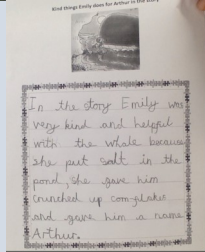 Kind things Emily does for Arthur in the story
In the story Emily was
very kind and helpful
with the whale because
she put salt in the
pond, she gave him
crunched up cornflakes
and gave him a name
Arthur.